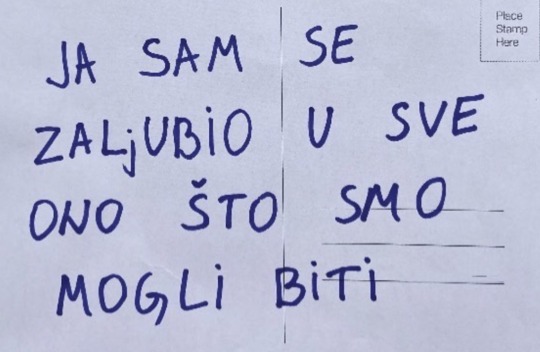 Place
Stamp
Here
JA SAM SE
ZALjUBiO U SVE
ONO ŠTO SMO
MOGLi BiTi